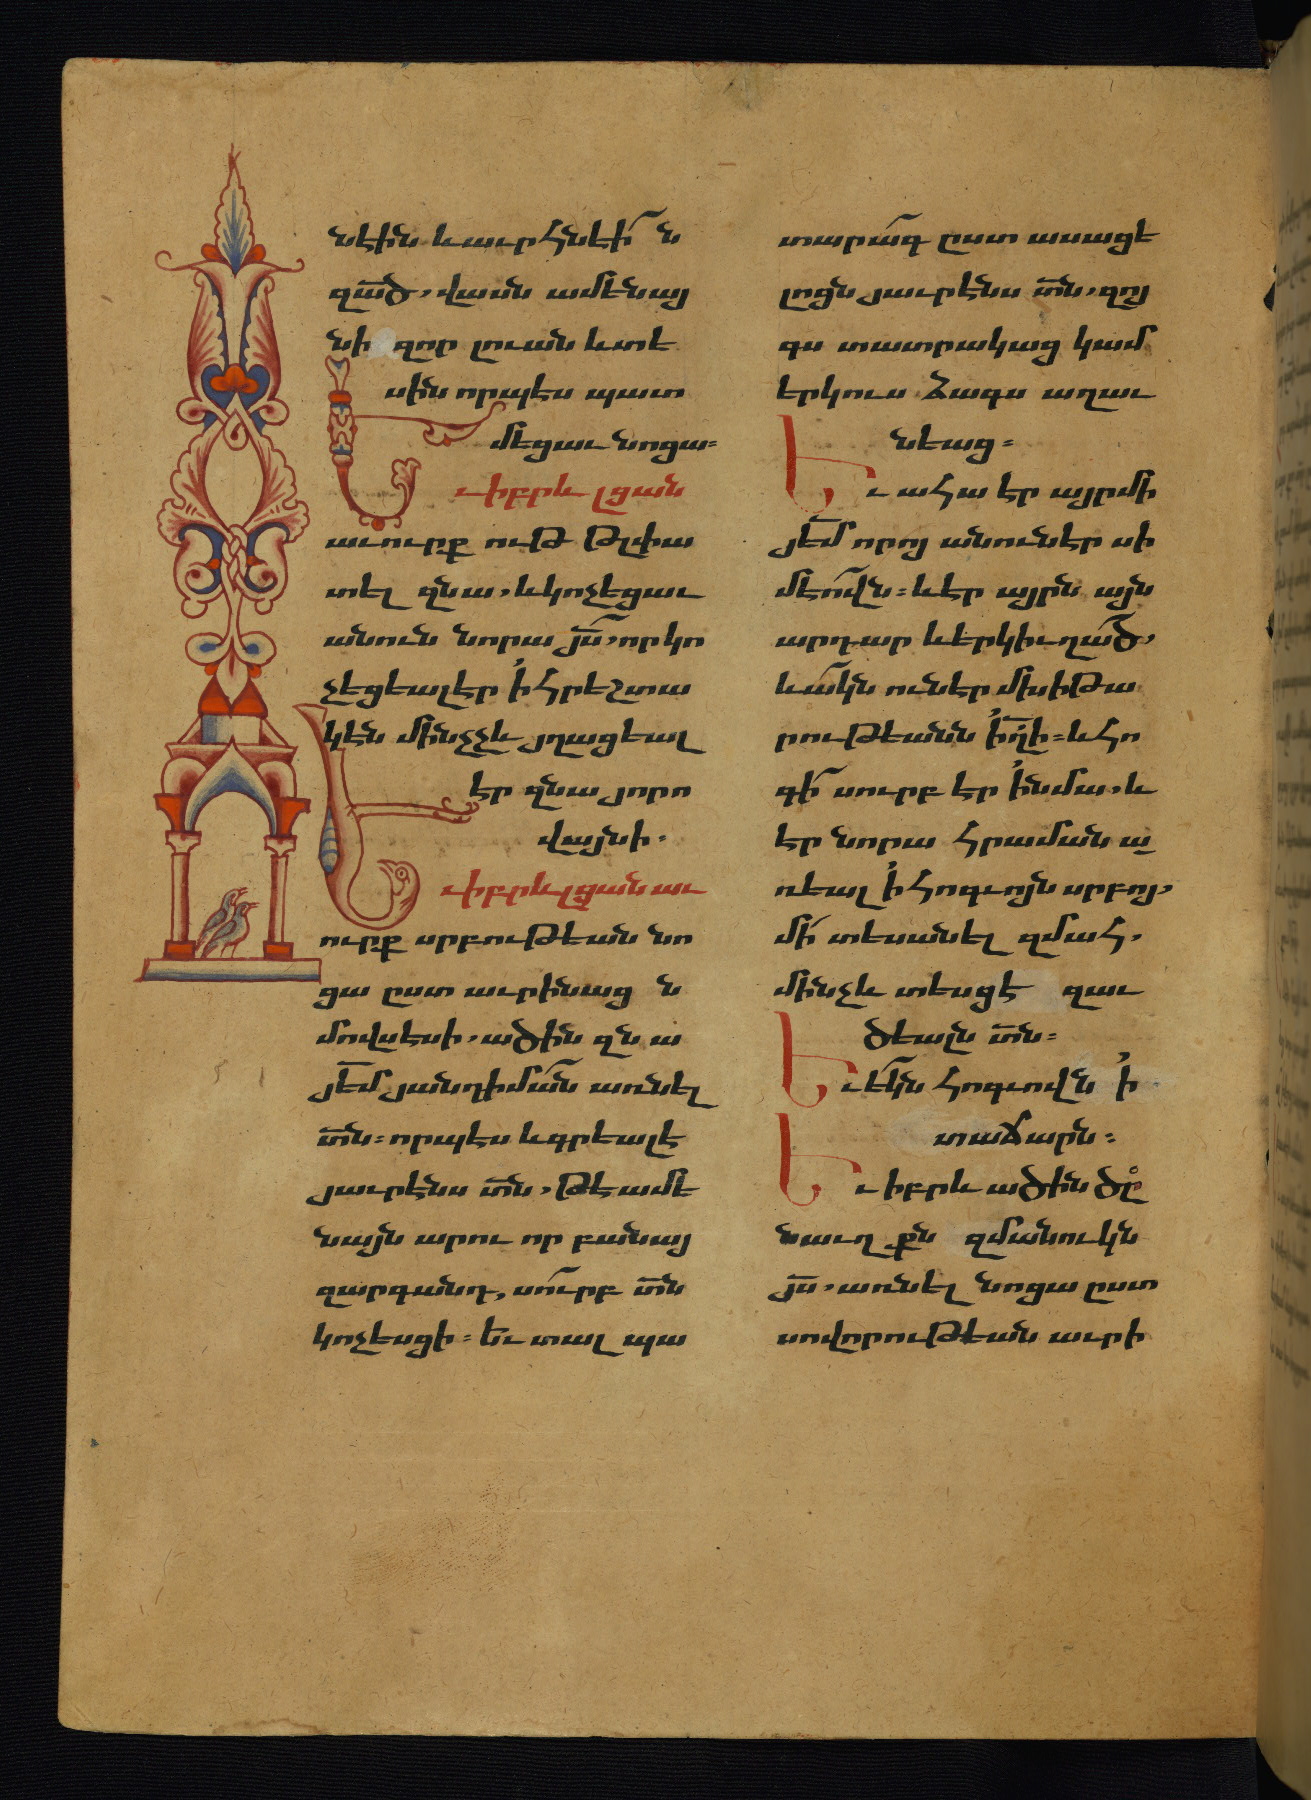 նէին և աւրհնէի՜ն
զա՟ծ, վասն ամենայ
նի զոր լուան և տե
սին որպէս պատ
մեցաւ նոցա։
Եւ իբրև լցան
աւուրք ութ թլփա
տել զնա, և կոչեցաւ
անուն նորա յ՟ս, որ կո
չեցեալ էր ի հրեշտա
կէն մինչչև յղացեալ
էր զնա յորո
վայնի.
Եւ իբրև լցան աւ
ուրք սրբութեան նո
ցա ըստ աւրինաց ն
մովսեսի, ածին զնա
յե՟մ յանդիման առնել
տ՟ն։ որպէս և գրեալ է
յաւրէնս տ՟ն, թէ ամե
նայն արու որ բանայ
զարգանդ, սուրբ տ՟ն
կոչեսցի։ Եւ տալ պա
տարագ ըստ ասացե
լոցն յաւրէնս տ՟ն, զոյ
գս տատրակաց կամ
երկուս ձագս աղաւ
նեաց։
Եւ ահա էր այր մի
յե՟մ որոյ անուն էր սի
մեովն։ և էր այրն այն
արդար և երկիւղած,
և ակն ունէր մխիթա
րութեանն ի՟ղի։ և հո
գի սուրբ էր ի նմա, և
էր նորա հրաման ա
ռեալ ի հոգւոյն սրբոյ,
մի տեսանել զմահ,
մինչև տեսցէ զաւ
ծեալն տ՟ն։
Եւ եկն հոգւովն ի
տաճարն։
Եւ իբրև ածին ծը
նաւղքն զմանուկն
յ՟ս, առնել նոցա ըստ
սովորութեան աւրի